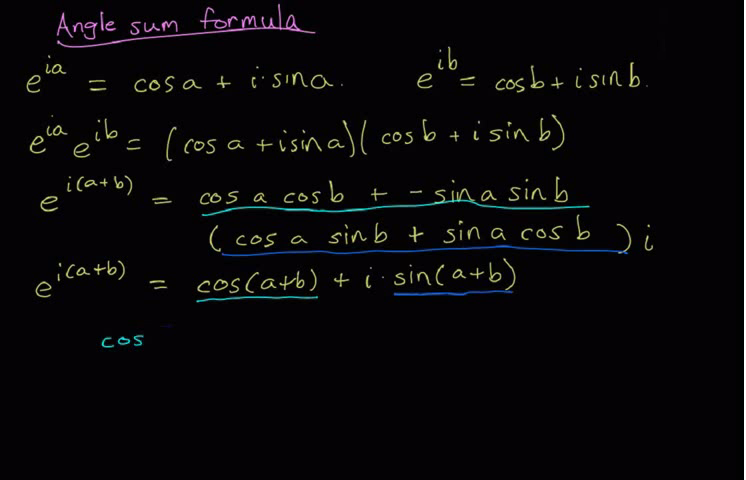 Angle sum formula
e^{ia} = cos a + i · sin a. e^{ib} = cos b + i sin b.
e^{ia} e^{ib} = (cos a + i sin a)(cos b + i sin b)
e^{i(a+b)} = cos a cos b + - sin a sin b
(cos a sin b + sin a cos b) i
e^{i(a+b)} = cos(a+b) + i · sin(a+b)
cos